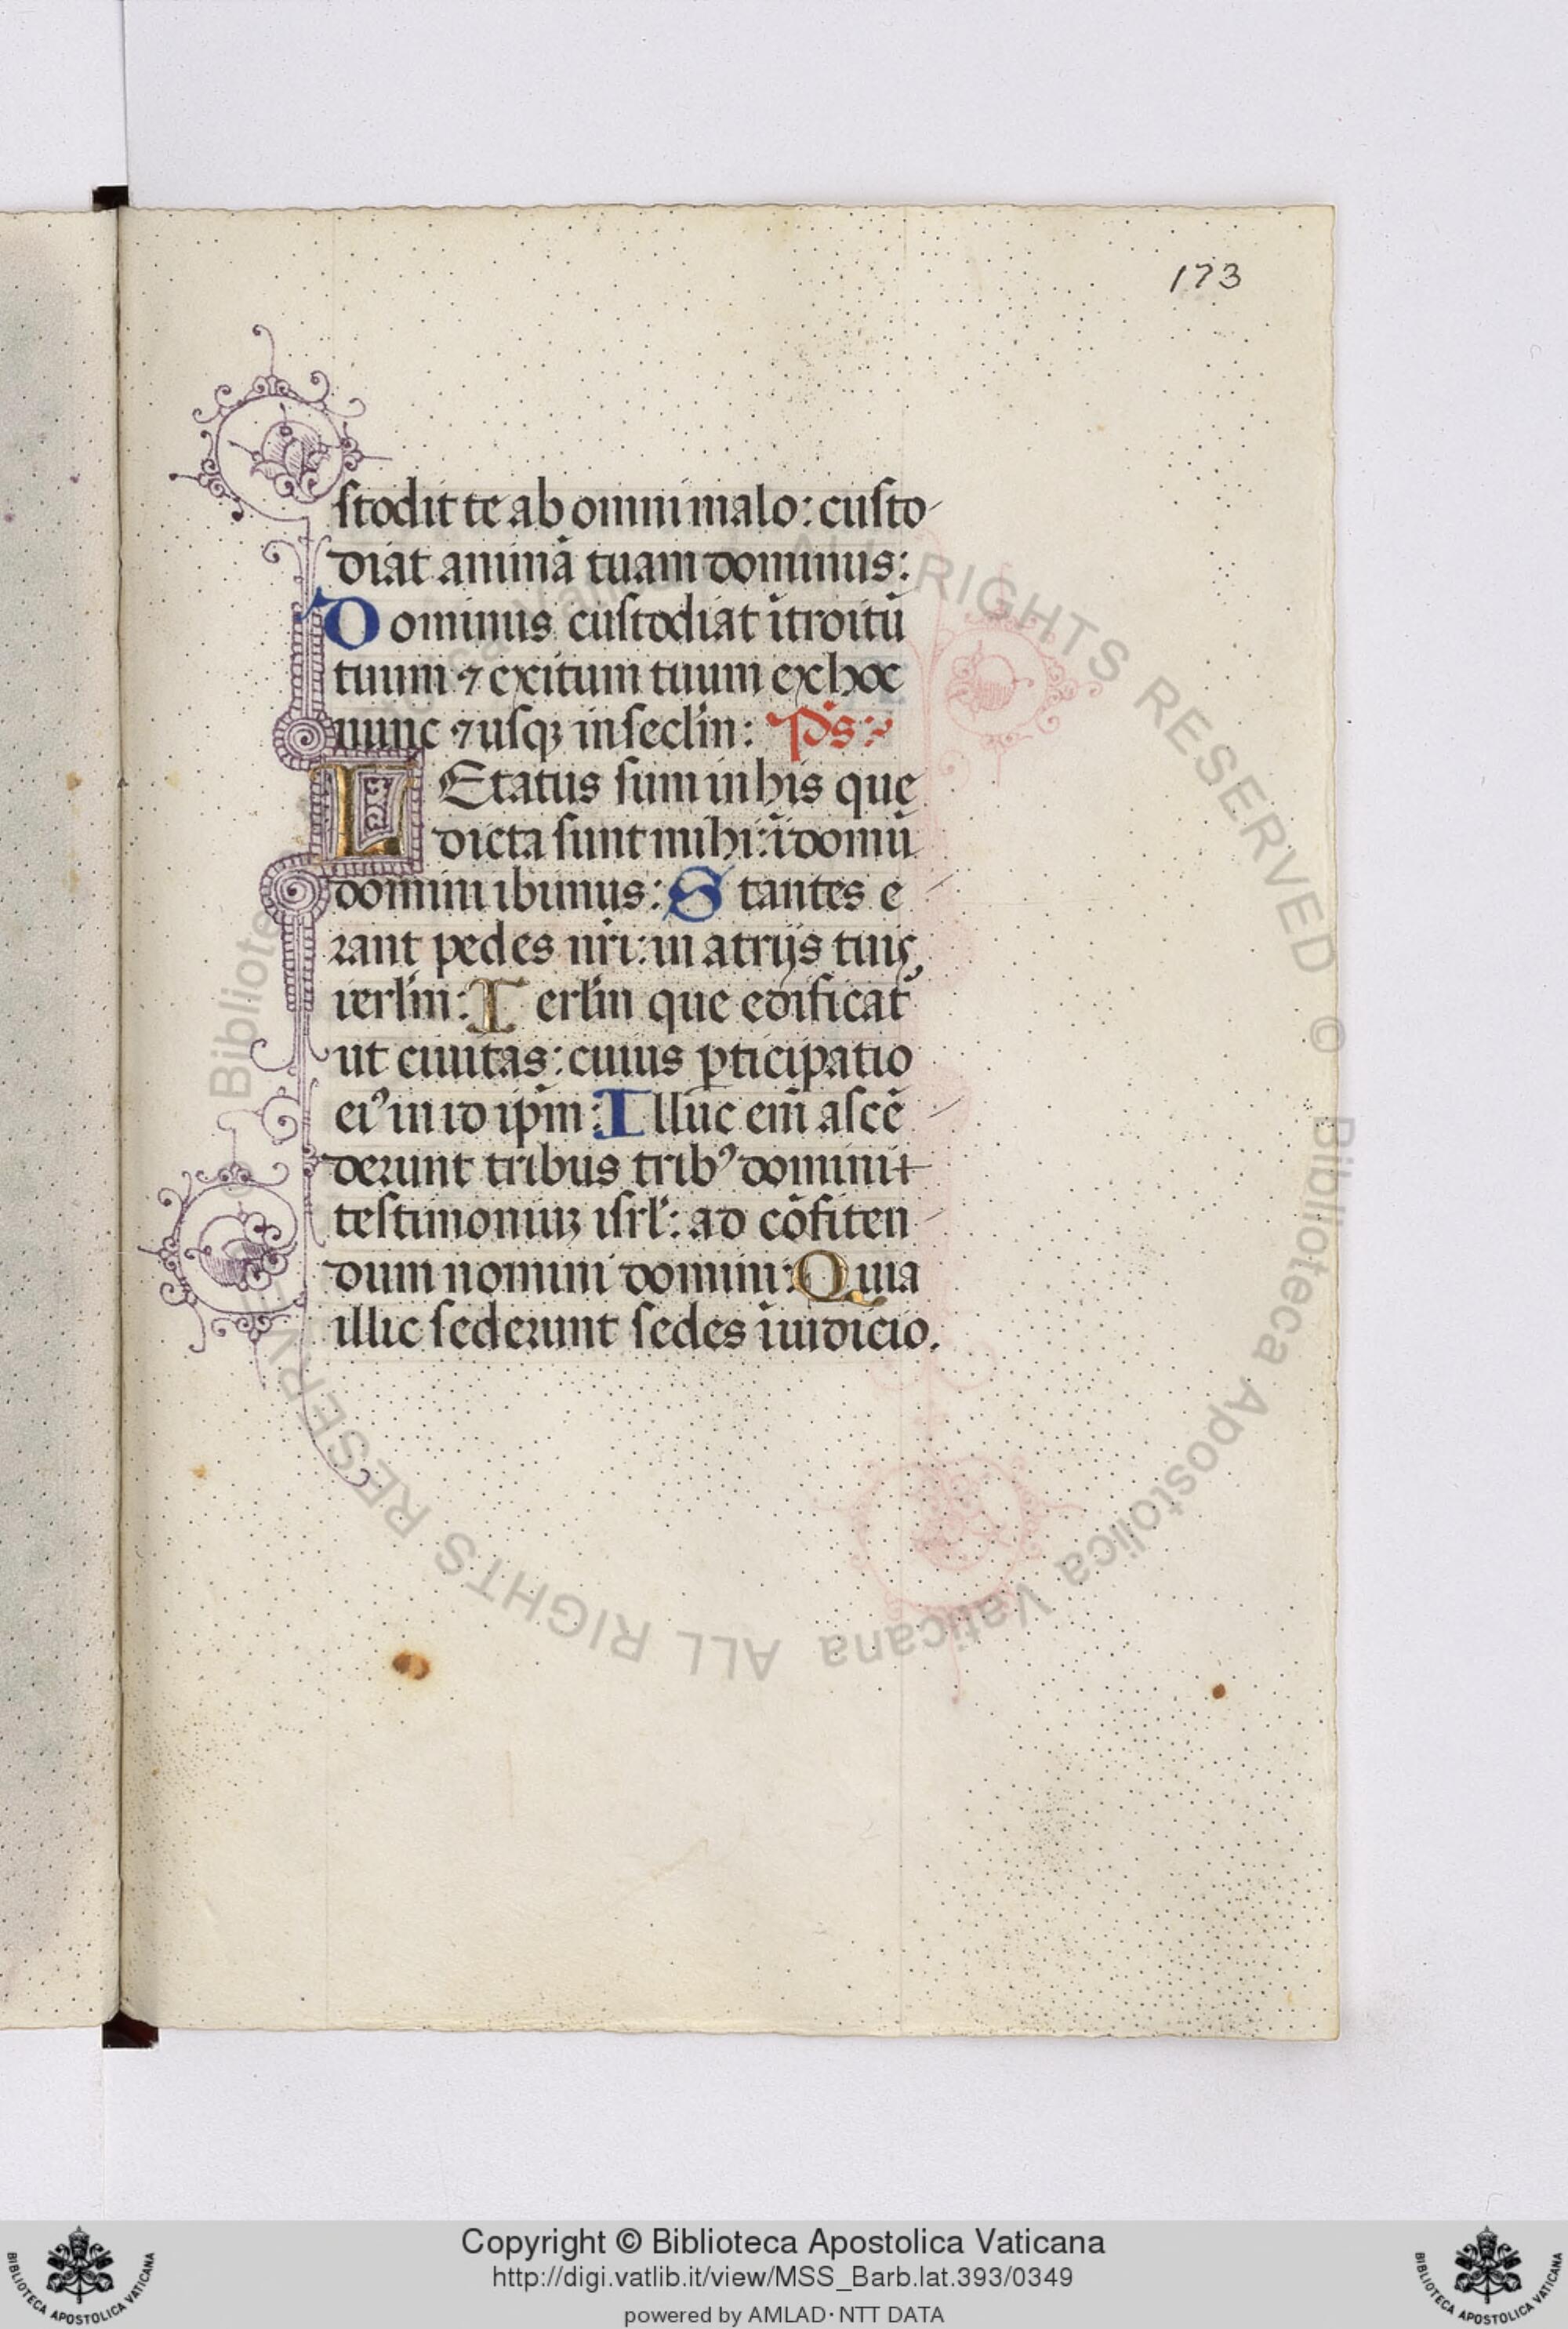 173
stodit te ab omni malo: custo-
diat animā tuam dominus:
Dominus custodiat ītroitū
tuum ⁊ exitum tuum ex hoc
nunc ⁊ usqꝫ in seclm̄: Ps:
LEtatus sum in his que
dicta sunt mihi: ī domū
domini ibimus: Stantes e-
rant pedes nr̄i: in atrijs tuis,
ierlm̄: Ierlm̄ que edificat᷑
ut ciuitas: cuius ꝑticipatio
eiꝰ in id ip̄m: Illuc em̄ ascē-
derunt tribus tribꝰ domini+
testimoniuꝫ isrl̄: ad cōfiten-
dum nomini domini: Quia
illic sederunt sedes ī iudicio.
Biblioteca Apostolica Vaticana ALL RIGHTS RESERVED ©
Biblioteca Apostolica Vaticana ALL RIGHTS RESERVED
Copyright © Biblioteca Apostolica Vaticana
http://digi.vatlib.it/view/MSS_Barb.lat.393/0349
powered by AMLAD·NTT DATA
BIBLIOTECA APOSTOLICA VATICANA
BIBLIOTECA APOSTOLICA VATICANA